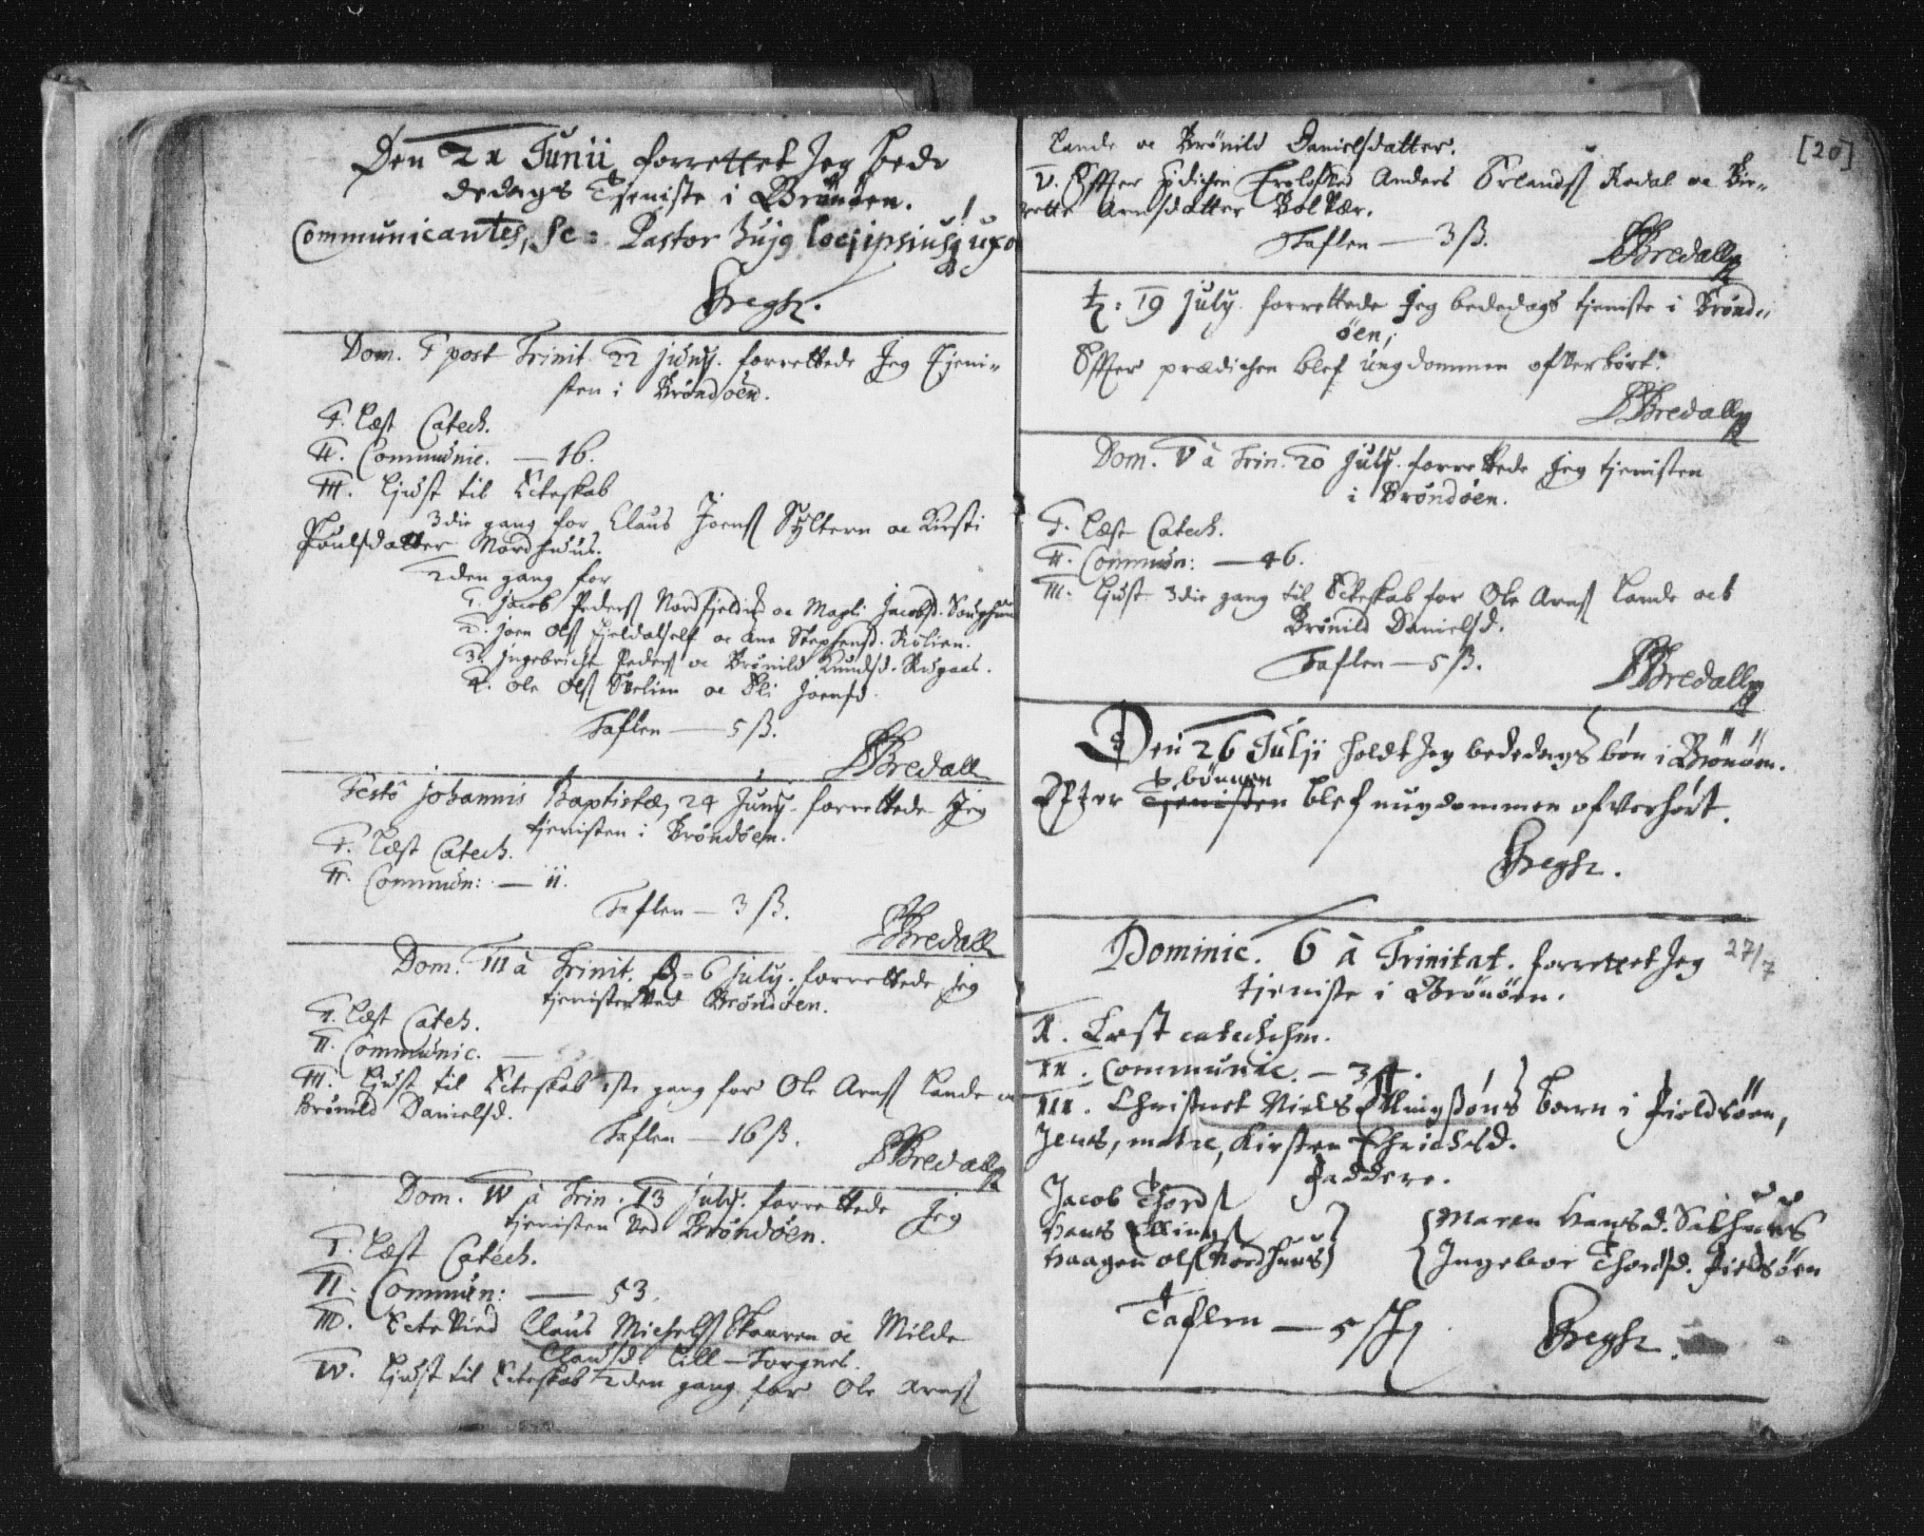 Den 21 Junii forrettet Jeg bede
dedags Tjeniste i Brönöen.
Communicantes, sc: Pastor hujg loci ipsiusq uxo
Bregh.
Dom. I post Trinit. 22 Junij. forrettede Jeg Tjeni-
sten i Bröndöen.
I. Læst Catech.
II. Communic. — 16.
III. Liust til Ecteskab
3die gang for Claus Joens Syltern oc Kirsti
Poulsdatter Nordhuus.
2den gang for
1. Jacob Peders Nordfjelds oc Magli Jacobsd.
2. Joen Ols oc Ane Stephensd.
3. Ingebricht Peders oc Brönild Knudsd.
4. Ole Ols oc Eli Joensd.
Taflen — 5 ß.
Bredall
Festo Johannis Baptistæ, 24 Junij. forrettede Jeg
tjenisten i Bröndöen.
I. Læst Catech.
II. Commun: — 11.
Taflen — 3 ß.
Bredall
Dom. III à Trinit. 6 July. forrettede jeg
tjenisten ved Bröndöen.
I. Læst Catech.
II. Communic. —
III. Liust til Ecteskab 1ste gang for Ole Arns Lande oc
Brönild Danielsd.
Taflen — 16 ß.
Bredall
Dom. IV à Trin. 13 July. forrettede Jeg
tjenisten ved Bröndöen.
I. Læst Catech.
II. Commun: — 53.
III. Ectevied Claus Michels Skaaren oc Milde
Clausd. Lill-Torgnes.
IV. Liust til Ecteskab 2den gang for Ole Arns
[20]
Lande oc Brönild Danielsdatter.
V. Efter Prædichen Anders Rodal oc Bi-
rette Arnsdatter Bolvær.
Taflen — 3 ß.
Bredall
19 July. forrettede Jeg bededags tjeniste i Brönd-
öen;
Efter prædichen blef ungdommen ofverhört.
Bredall
Dom. V à Trin. 20 July. forrettede Jeg tjenisten
i Bröndöen.
I. Læst Catech.
II. Commun: — 46.
III. Liust 3die gang til Ecteskab for Ole Arns Lande och
Brönild Danielsd.
Taflen — 5 ß.
Bredall
Den 26 Julji holdt Jeg bededags bön i Brönöen.
bönnen
Efter Tjenisten blef ungdommen ofverhört.
Bregh.
Dominic. 6 à Trinitat. forrettet Jeg 27/7
tjeniste i Brönöen.
I. Læst catechism.
II. Communic. — 34.
III. Christnet Niels Ellingsöns barn i Fieldsöen,
Jens, matre, Kirsten Chrichsd.
Faddere.
Jacob Thords
Hans Ellings
Haagen Ols Nordhuus
Maren Hansd. Salhuus
Ingebor Thordsd. Fieldsöen
Taflen — 5 ß
Bregh.